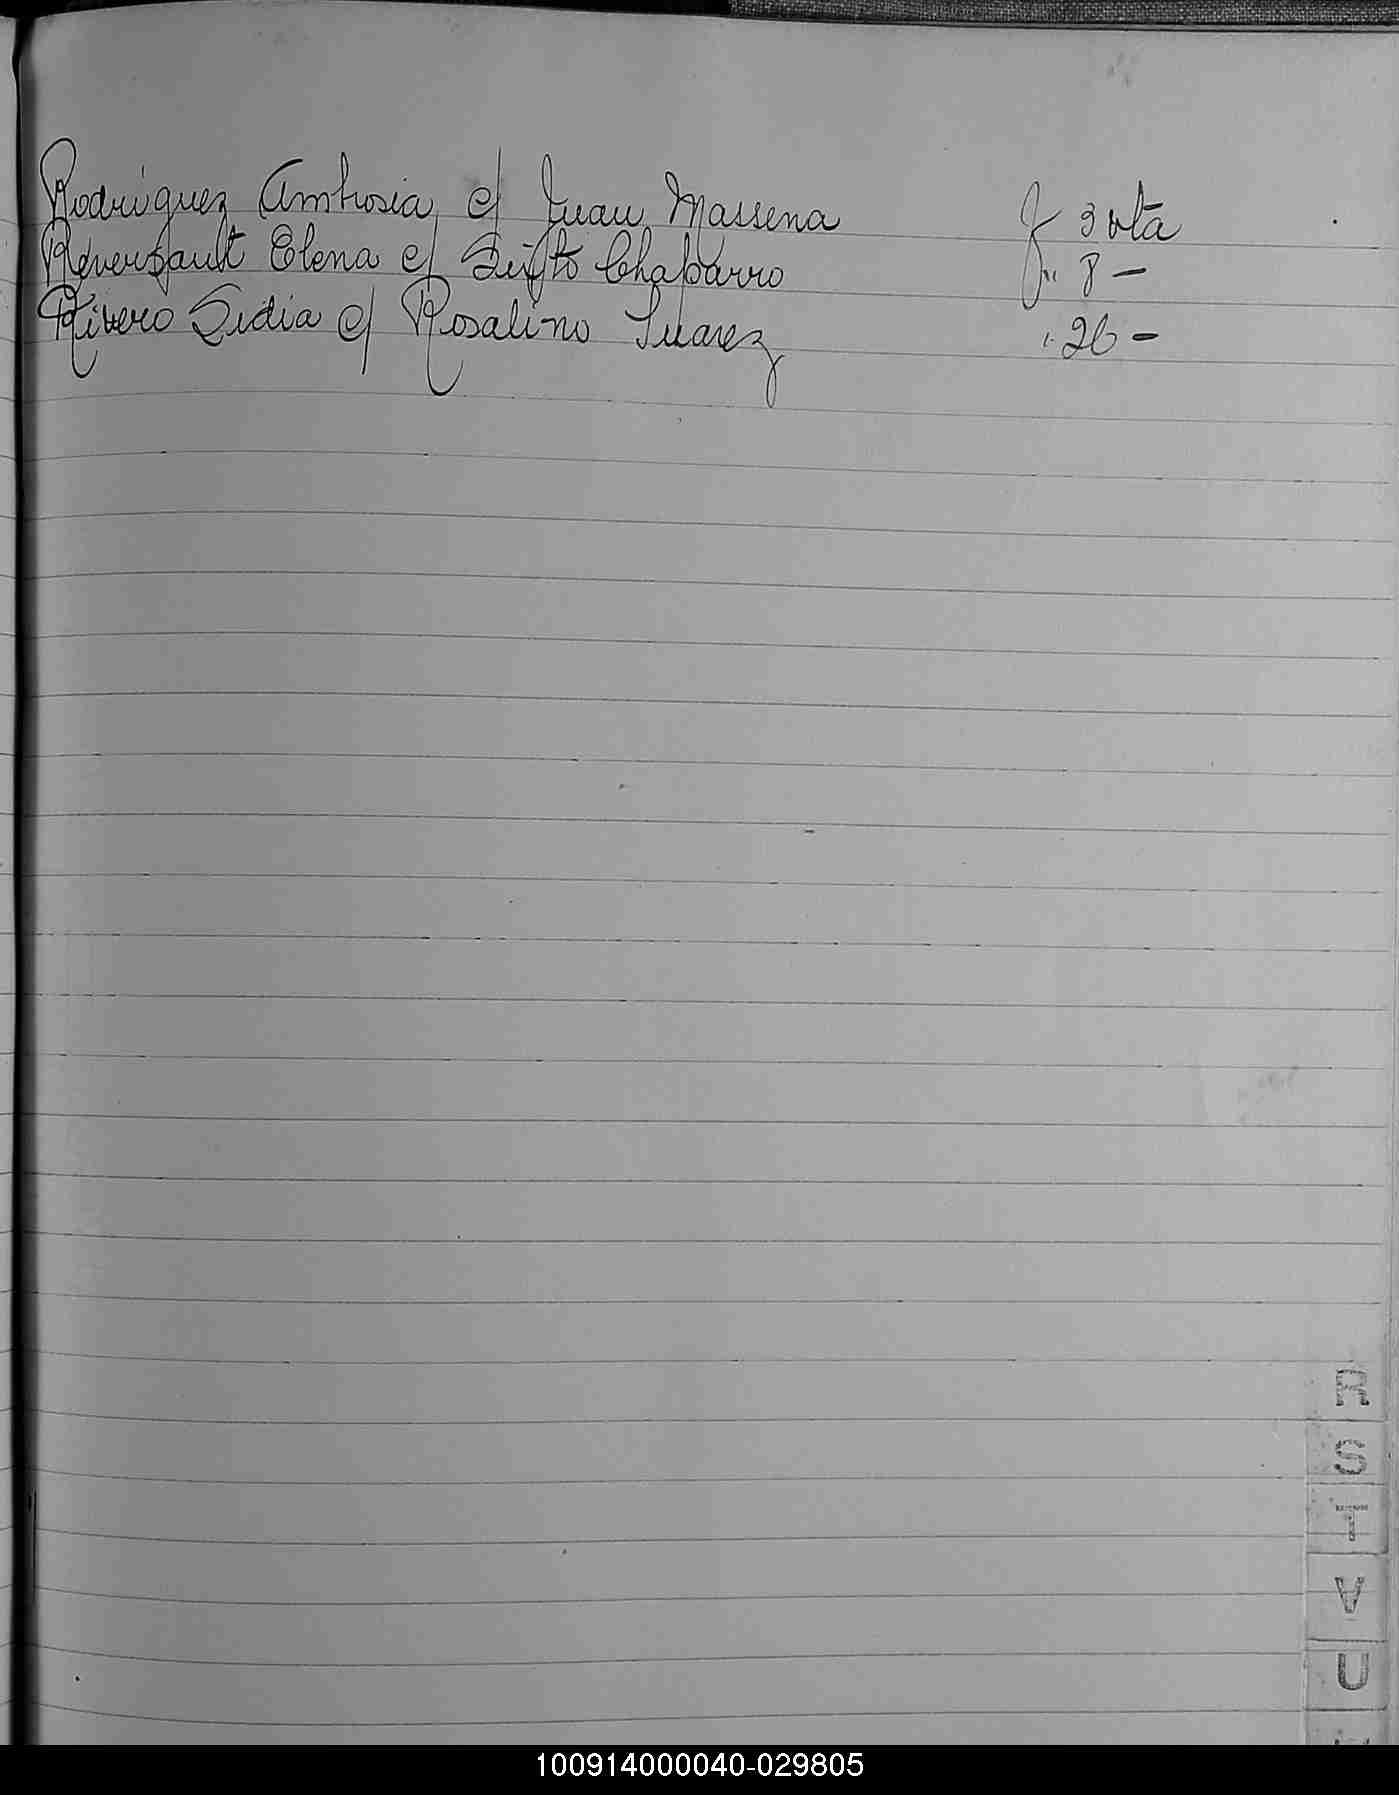 Rodriguez Ambrosia c/ Juan Massena f 3 vta
Reversault Elena c/ Sixto Chaparro f. " 8 —
Rivero Lidia c/ Rosalino Suarez " 26 —
R
S
T
V
U
100914000040-029805